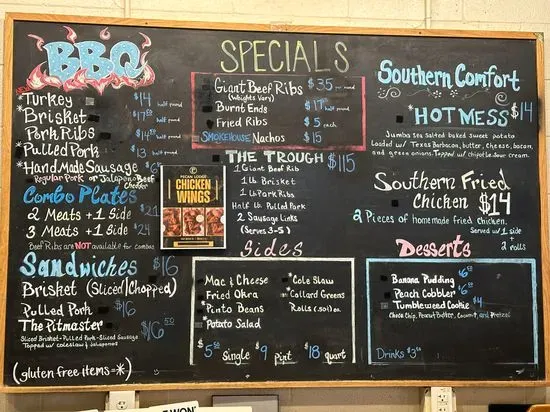 BBQ
*Turkey $14 half pound
*Brisket $17.50 half pound
Pork Ribs $14.50 half pound
*Pulled Pork $13 half pound
*Hand Made Sausage
Regular Pork or Jalapeño Beef
Cheddar
Combo Plates
2 Meats + 1 Side $21
3 Meats + 1 Side $24
Beef Ribs are NOT available for combos
Sandwiches $16
Brisket (Sliced/Chopped)
Pulled Pork $16
The Pitmaster $16.50
Sliced Brisket-Pulled Pork-Sliced Sausage
Topped w/ coleslaw & jalapenos
(gluten free Items=*)
PECAN LODGE
CHICKEN
WINGS
SPECIALS
Giant Beef Ribs $35 per pound
(Weights Vary)
Burnt Ends $17 half pound
Fried Ribs $5 each
SMOKEHOUSE Nachos $15
THE TROUGH $115
1 Giant Beef Rib
1 lb. Brisket
1 lb. Pork Ribs
Half lb. Pulled Pork
2 Sausage Links
(Serves 3-5)
Sides
Mac & Cheese
Fried Okra
*Pinto Beans
*Potato Salad
*Cole Slaw
*Collard Greens
Rolls (.50¢) ea.
$5.50 Single $9 Pint $18 quart
Southern Comfort
*HOT MESS $14
Jumbo sea salted baked sweet potato
Loaded w/ Texas Barbacoa, butter, cheese, bacon,
and green onions. Topped w/ chipotle sour cream.
Southern Fried
Chicken $14
2 Pieces of homemade fried chicken.
Served w/ 1 side
2 rolls
Desserts
Banana Pudding $6
Peach Cobbler $6
Tumbleweed Cookie $4
Choco Chip, Peanut Butter, Coconut, and Pretzel
Drinks $3.50